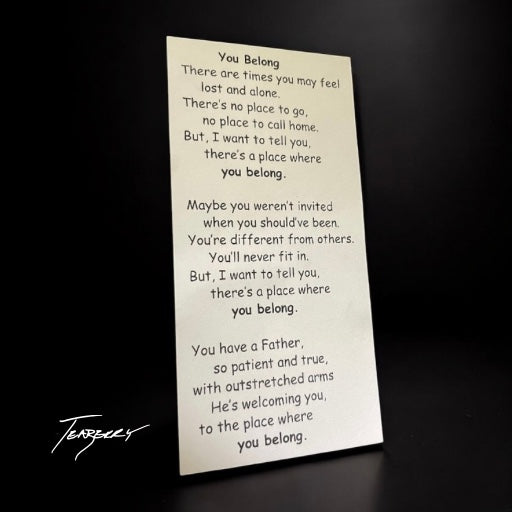 You Belong
There are times you may feel
lost and alone.
There's no place to go,
no place to call home.
But, I want to tell you,
there's a place where
you belong.
Maybe you weren't invited
when you should've been.
You're different from others.
You'll never fit in.
But, I want to tell you,
there's a place where
you belong.
You have a Father,
so patient and true,
with outstretched arms
He's welcoming you,
to the place where
you belong.
Tearzery